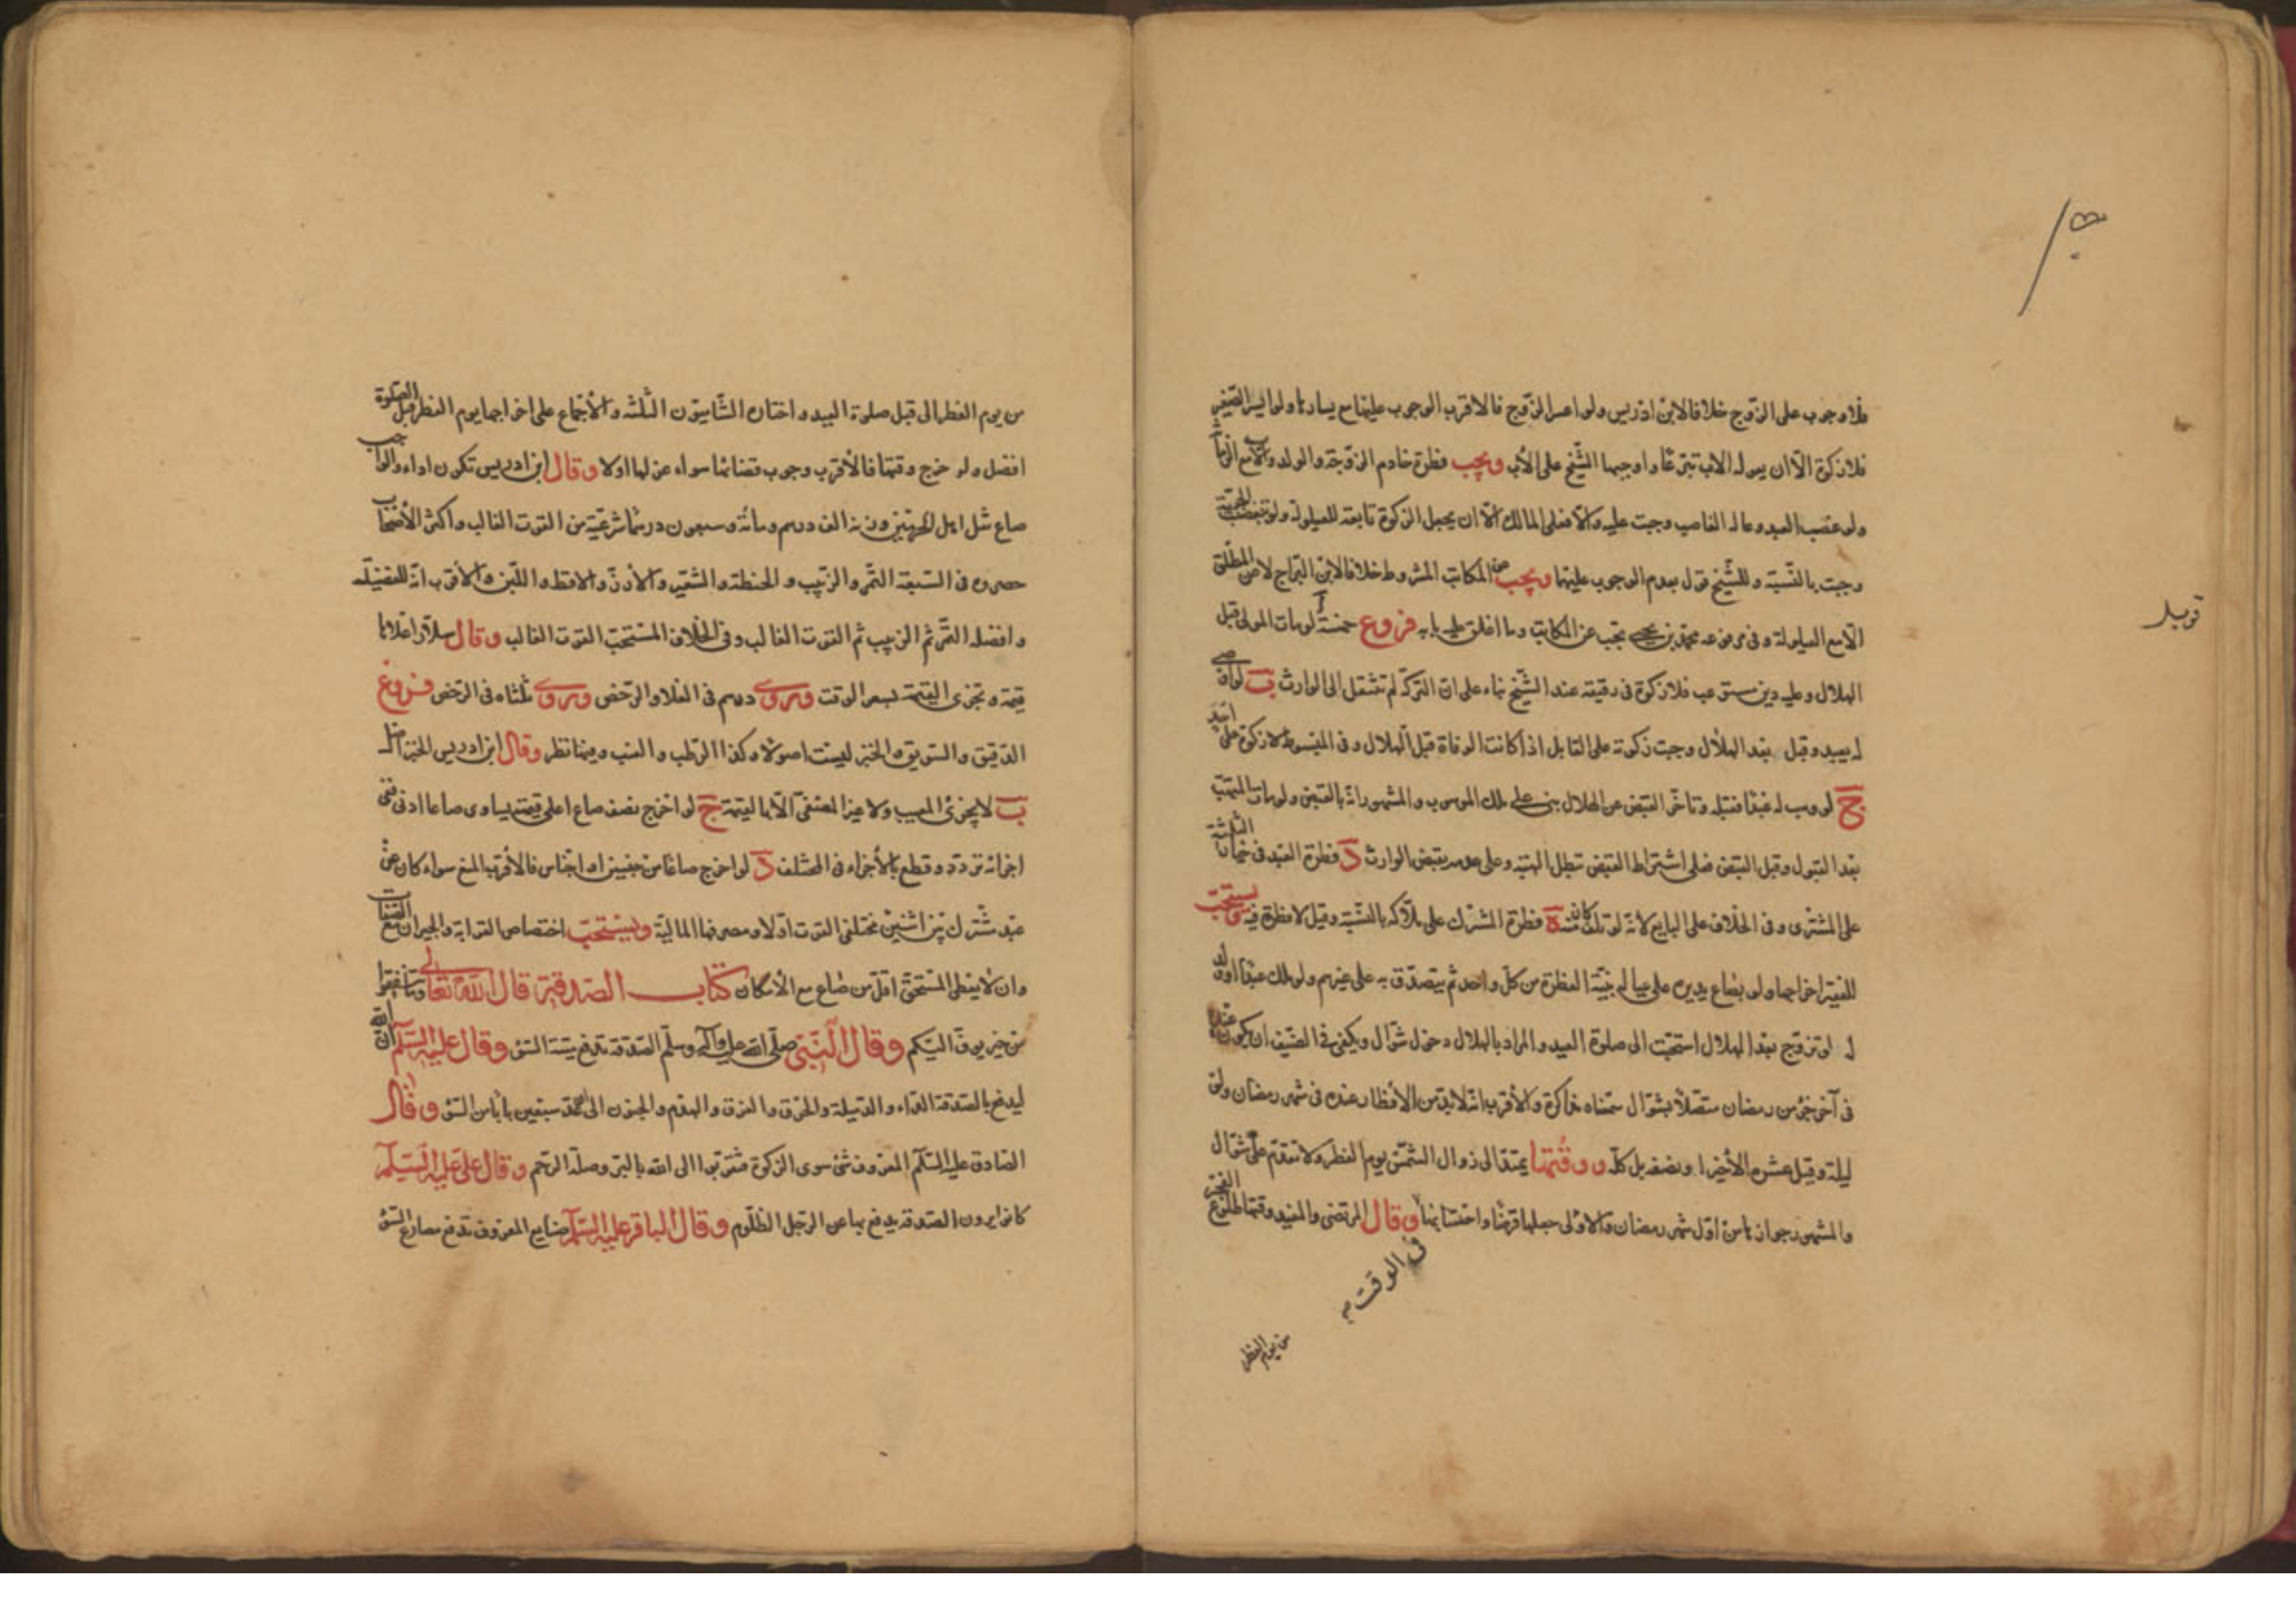 فلا وجوب على الزوج خلافا لابن ادريس ولو اعسر الزوج فالاقرب الوجوب عليها مع يسارها ولو ايسر الصغير
فلا زكوة الا ان يعوله الاب تبرعا واوجبها الشيخ على الأب ويجب فطرة خادم الزوجة والولد والأب مع الزمانة
ولو غصب العبد وعاله الغاصب وجبت عليه والا فعلى المالك الا ان يجعل الزكوة تابعة للعيلولة ولو تبعضت الحرية
وجبت بالنسبة وللشيخ قول بعدم الوجوب عليهما ويجب عن المكاتب المشروط خلافا لابن البراج لا من المطلق
الا مع العيلولة وفي مرفوعه محمد بن يحيى تجب عن المكاتب وما اغلق عليه بابه فروع خمسة آ لو مات المولى قبل
الهلال وعليه دين مستوعب فلا زكوة في رقيقه عند الشيخ بناء على ان التركة لم تنتقل الى الوارث ب لو اوصى
له بعبد وقبل بعد الهلال وجبت زكوته على القابل اذا كانت الوفاة قبل الهلال وفي المبسوط لا زكوة على احد
ج لو وهب له عبدا فقبله وتأخر القبض عن الهلال بنى على ملك الموهوب والمشهور انه بالقبض ولو مات المتهب
بعد القبول وقبل القبض فعلى اشتراط القبض تبطل الهبة وعلى عدمه يقبض الوارث د فطرة العبد في خيار الثلثة
على المشترى وفي الخلاف على البايع لانه لو تلف كان منه ه فطرة المشترك على ملاكه بالنسبة وقيل لا فطرة فيه ويستحب
للفقير اخراجها ولو بصاع يديره على عياله بنية الفطرة من كل واحد ثم يتصدق به على غيرهم ولو ملك عبدا او ولد
له او تزوج بعد الهلال استحبت الى صلوة العيد والمراد بالهلال دخول شوال ويكفى في الضيف ان يكون عنده
في آخر جزء من رمضان متصلا بشوال سمعناه مذاكرة والأقرب انه لا بد من الأفطار عنده في شهر رمضان ولو
ليلة وقيل عشره الأخير او نصفه بل كله ووقتها يمتد الى زوال الشمس يوم الفطر ولا تتقدم على شوال
والمشهور جوازها من اول شهر رمضان والاولى جعلها قرضا واحتسابها وقال المرتضى والمفيد وقتها طلوع الفجر
في الوقت
من يوم الفطر
قوبلـ
من يوم الفطر الى قبل صلوة العيد واختان الشاميون الثلثه والأجماع على اخراجها يوم الفطر قبل الصلوة
افضل ولو خرج وقتها فالأقرب وجوب قضائها سواء عزلها او لا وقال ابن ادريس تكون اداء والواجب
صاع مثل اهل الحرمين وزنه الف درهم ومائة وسبعون درهما شرعية من القوت الغالب واكثر الأصحاب
حصروه في السبعة التمر والزبيب والحنطة والشعير والأرز والاقط واللبن والأقرب انه للفضيلة
وافضله التمر ثم الزبيب ثم القوت الغالب وفي الخلاف المستحب القوت الغالب وقال سلار اغلاها
قيمة وتجزى القيمة بسعر الوقت وروى درهم في الغلاء والرخص وروى ثلثاه في الرخص فروع
الدقيق والسويق والخبز ليست اصولا وكذا الرطب والعنب وفيهما نظر وقال ابن ادريس الخبز اصل
ب لا يجزئ المعيب ولا غير المصفى الا بالقيمة ج لو اخرج نصف صاع اعلى قيمته يساوى صاعا ادنى ففى
اجزائه تردد وقطع بالأجزاء في المختلف د لو اخرج صاعا من جنسين او اجناس فالأقرب المنع سواء كان عن
عبد مشترك بين اثنين مختلفى القوت او لا ومصرفها المالية ويستحب اختصاص القرابة والجيران مع الصفات
وان لا يعطى المستحق اقل من صاع مع الأمكان كتاب الصدقة قال الله تعالى وما تنفقوا
من خير يوف اليكم وقال النبي صلى الله عليه وآله وسلم الصدقة تدفع ميتة السوء وقال عليه السلم ان الله
ليدفع بالصدقة الداء والدبيلة والحرق والغرق والهدم والجنون الى ان عد سبعين بابا من السوء وقال
الصادق عليه السلم المعروف شئ سوى الزكوة فتقربوا الى الله بالبر وصلة الرحم وقال على عليه السلم
كانوا يرون الصدقة يدفع بها عن الرجل الظلوم وقال الباقر عليه السلم صنايع المعروف تدفع مصارع السوء